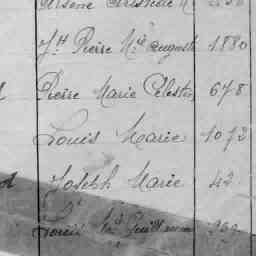 Jh Pierre Mie auguste 1880
Pierre Marie Celestin 678
Louis Marie 1073
Joseph Marie 43
Louis Mie Guillaume